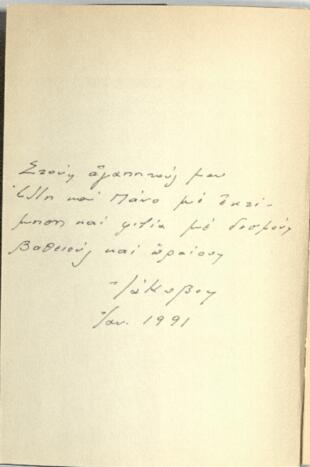 Στούς ἀγαπητούς μου
καί Πάνο μέ ἐκτί-
μηση καί φιλία μέ δεσμούς
βαθειούς καί ὡραίους
Ἰάκωβος
Ἰαν. 1991